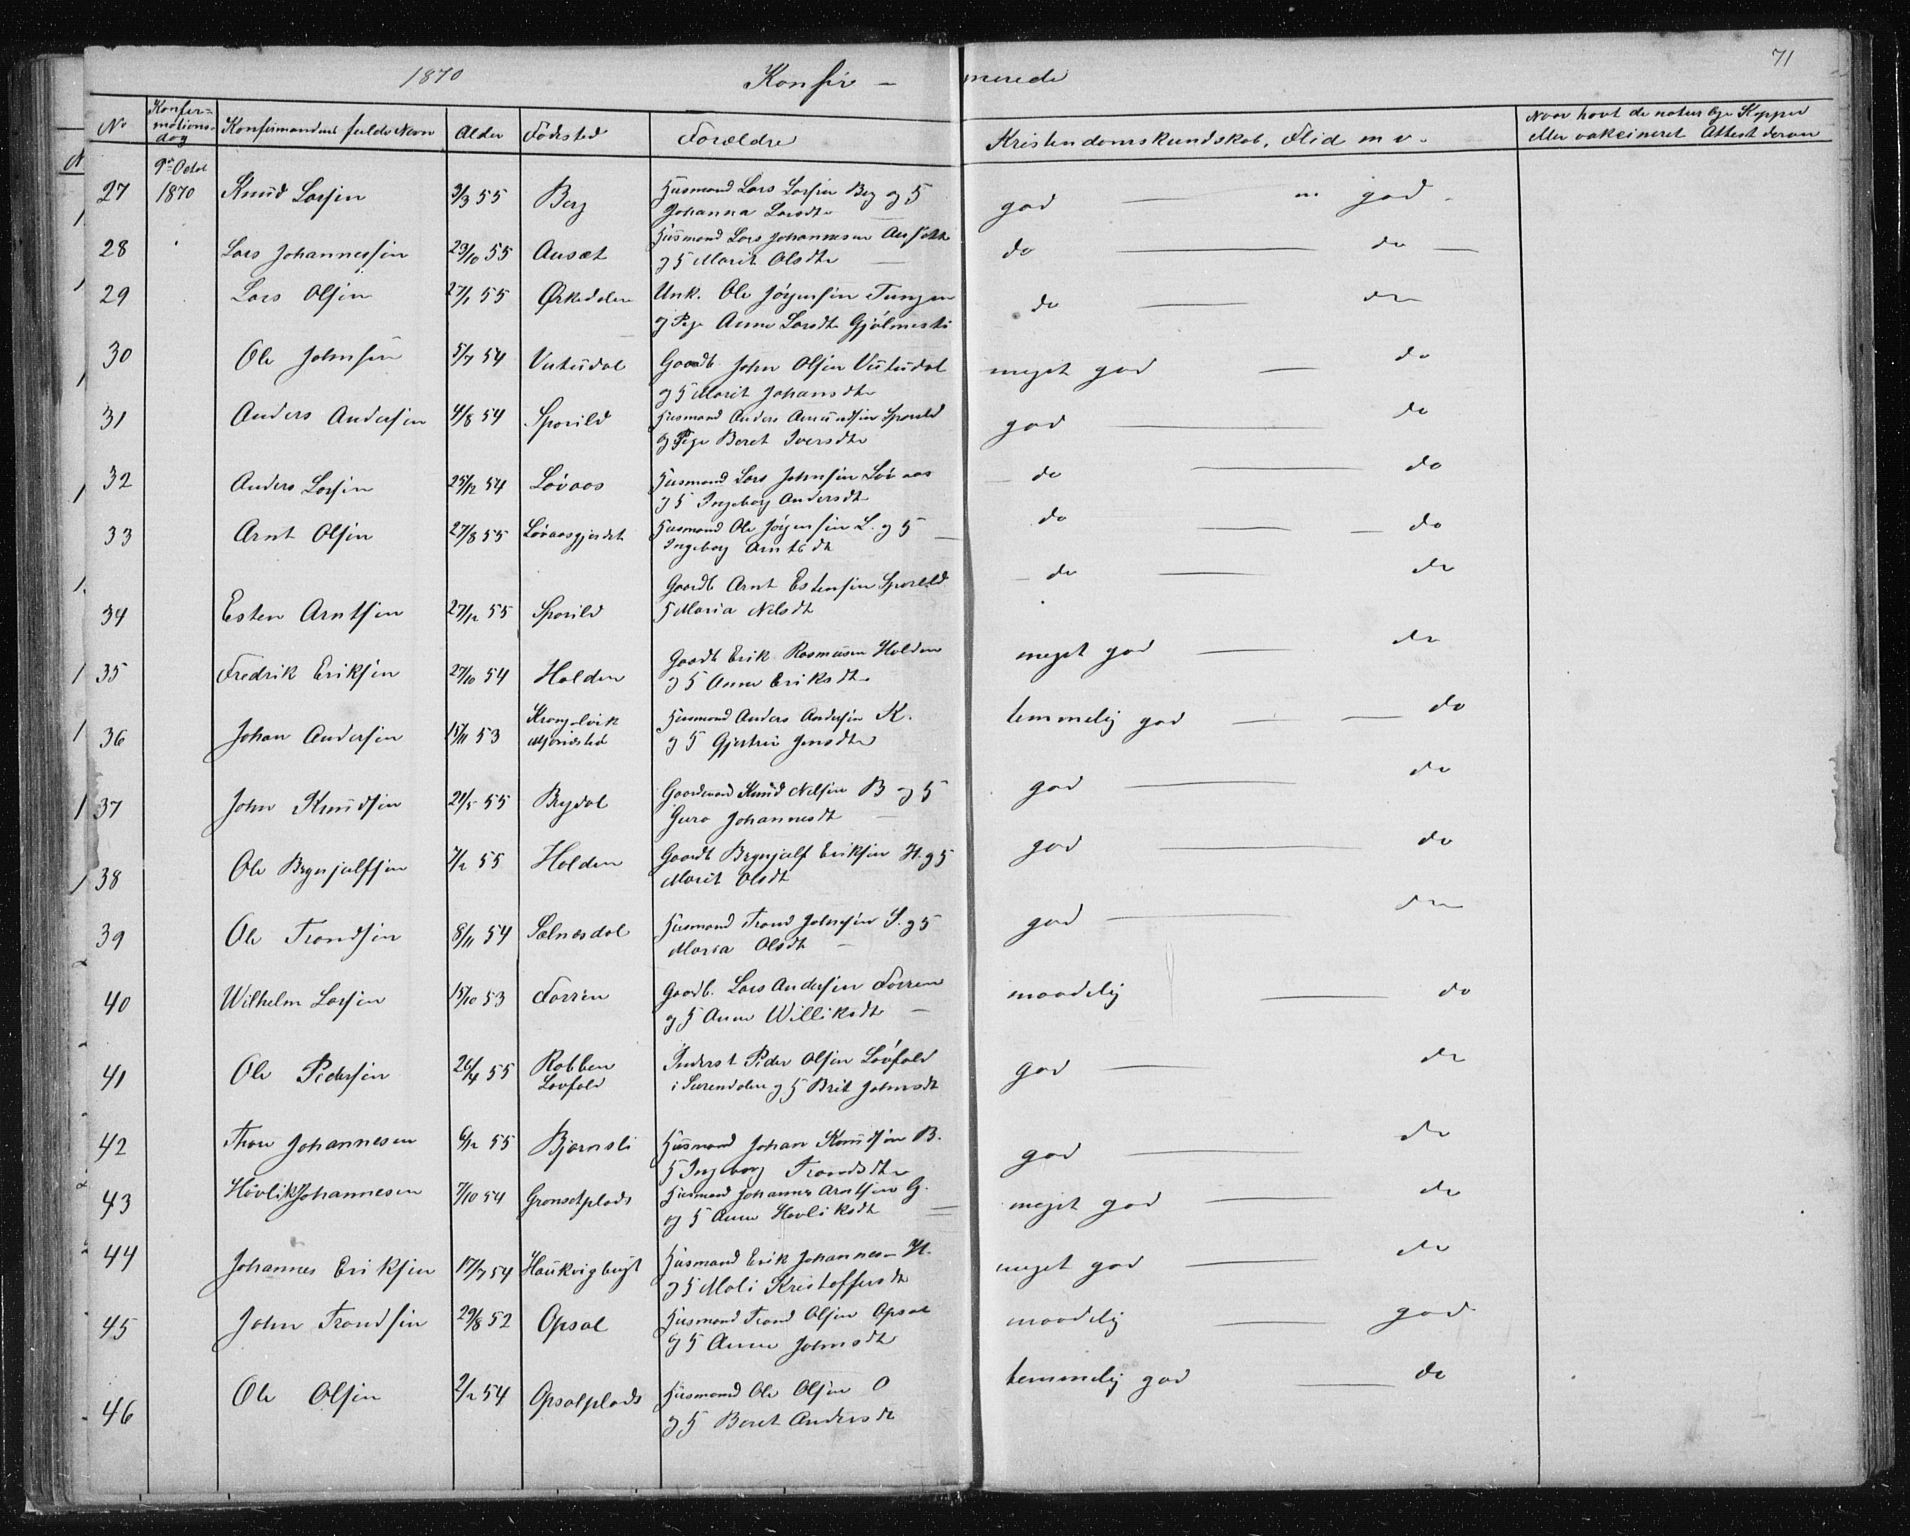 1870 Konfir - merede 71
No Konfir= mations= dag Konfirmandens fulde Navn Alder Fødested Forældre Kristendomskundskab, Flid m v. Naar havt de naturlige Kopper eller vakcineret Attest derom
9de Octob
27 1870 Knud Larsen 3/3 55 Berg Husmand Lars Larsen Berg og H god — " god
Johanna Larsdtr
28 Lars Johannessen 23/10 55 Ausæt Husmand Lars Johannesen Ausætt do — do —
og H Marit Olsdtr
29 Lars Olsen 27/1 55 Ørkedalen Unk. Ole Jørgensen Tungen do — do
og Pige Anne Larsdtr Gjølmesli
30 Ole Johnsen 5/7 54 Vutudal Gaardb John Olsen Vutudal meget god — do
og H Marit Johansdtr
31 Anders Andersen 4/8 54 Sporild Husmand Anders Amundsen Sporild god — do
og Pige Beret Iversdtr
32 Anders Larsen 25/12 54 Løvaas Husmand Lars Johnsen Løvaas do — do
og H Ingeborg Andersdtr
33 Arnt Olsen 27/8 55 Løvaasgjerdet Husmand Ole Jørgensen L. og H do — do
Ingeborg Arntsdt
Gaardb Arnt Estensen Sporild do — do
34 Esten Arntsen 27/12 55 Sporild H Maria Nilsdt
35 Fredrik Eriksen 27/10 54 Holden Gaardb Erik Rasmusen Holden meget god — do
og H Anne Eriksdtr
36 Johan Andersen 15/11 53 Krangelvik Husmand Anders Andersen K. temmelig god — do
og H Gjertru Jensdtr
37 John Knudsen 21/5 55 Brydal Gaardmand Knud Nilsen B og H god — do
Guro Johannesdt
38 Ole Brynjulfsen 7/2 55 Holden Gaardb Brynjulf Eriksen H. og H god — do
Marit Olsdt
39 Ole Trondsen 8/11 54 Selnæsdal Husmand Trond Johnsen S. og H god — do
Maria Olsdt
40 Wilhelm Larsen 15/10 53 Forren Gaardb. Lars Andersen Forren maadelig — do
og H Anne Williksdtr
41 Ole Pedersen 26/4 55 Robben Inderst Peder Olsen Løvfald god — do
Lovfald i Surendalen og H Brit Johnsdt
42 Thore Johannesen 6/12 55 Bjørnsli Husmand Johan Knudsen B. god — do
H Ingeborg Trondsdtr
43 Høvlik Johannesen 7/10 54 Grønsetplads Husmand Johannes Arntsen G. meget god — do
og H Anne Høvliksdt
44 Johannes Eriksen 17/7 54 Haukvigbugt Husmand Erik Johannesen H. meget god — do
og H Mali Kristoffersdt
45 John Trondsen 29/8 52 Opsal Husmand Trond Olsen Opsal maadelig — god
og H Anne Johnsdtr
46 Ole Olsen 2/2 54 Opsalplads Husmand Ole Olsen O temmelig god — do
og H Beret Andersdt